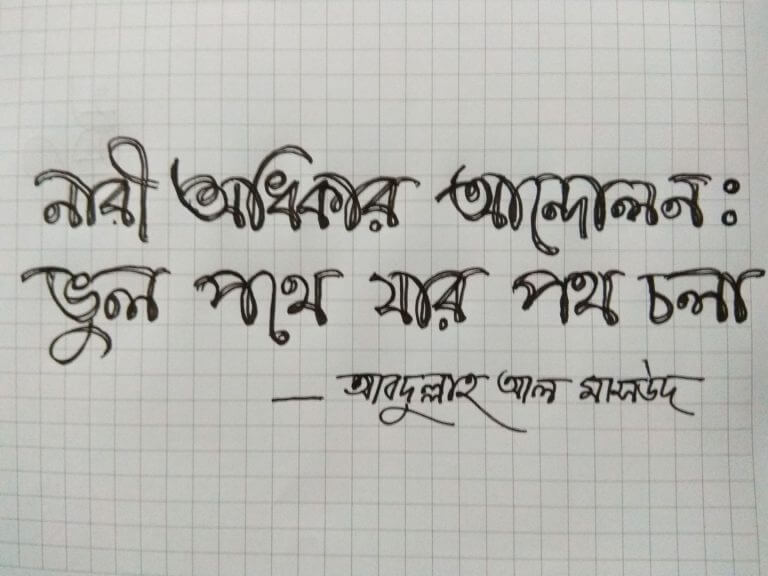 নারী অধিকার আন্দোলন:
ভুল পথে যার পথ চলা
— আবদুল্লাহ আল মাসউদ